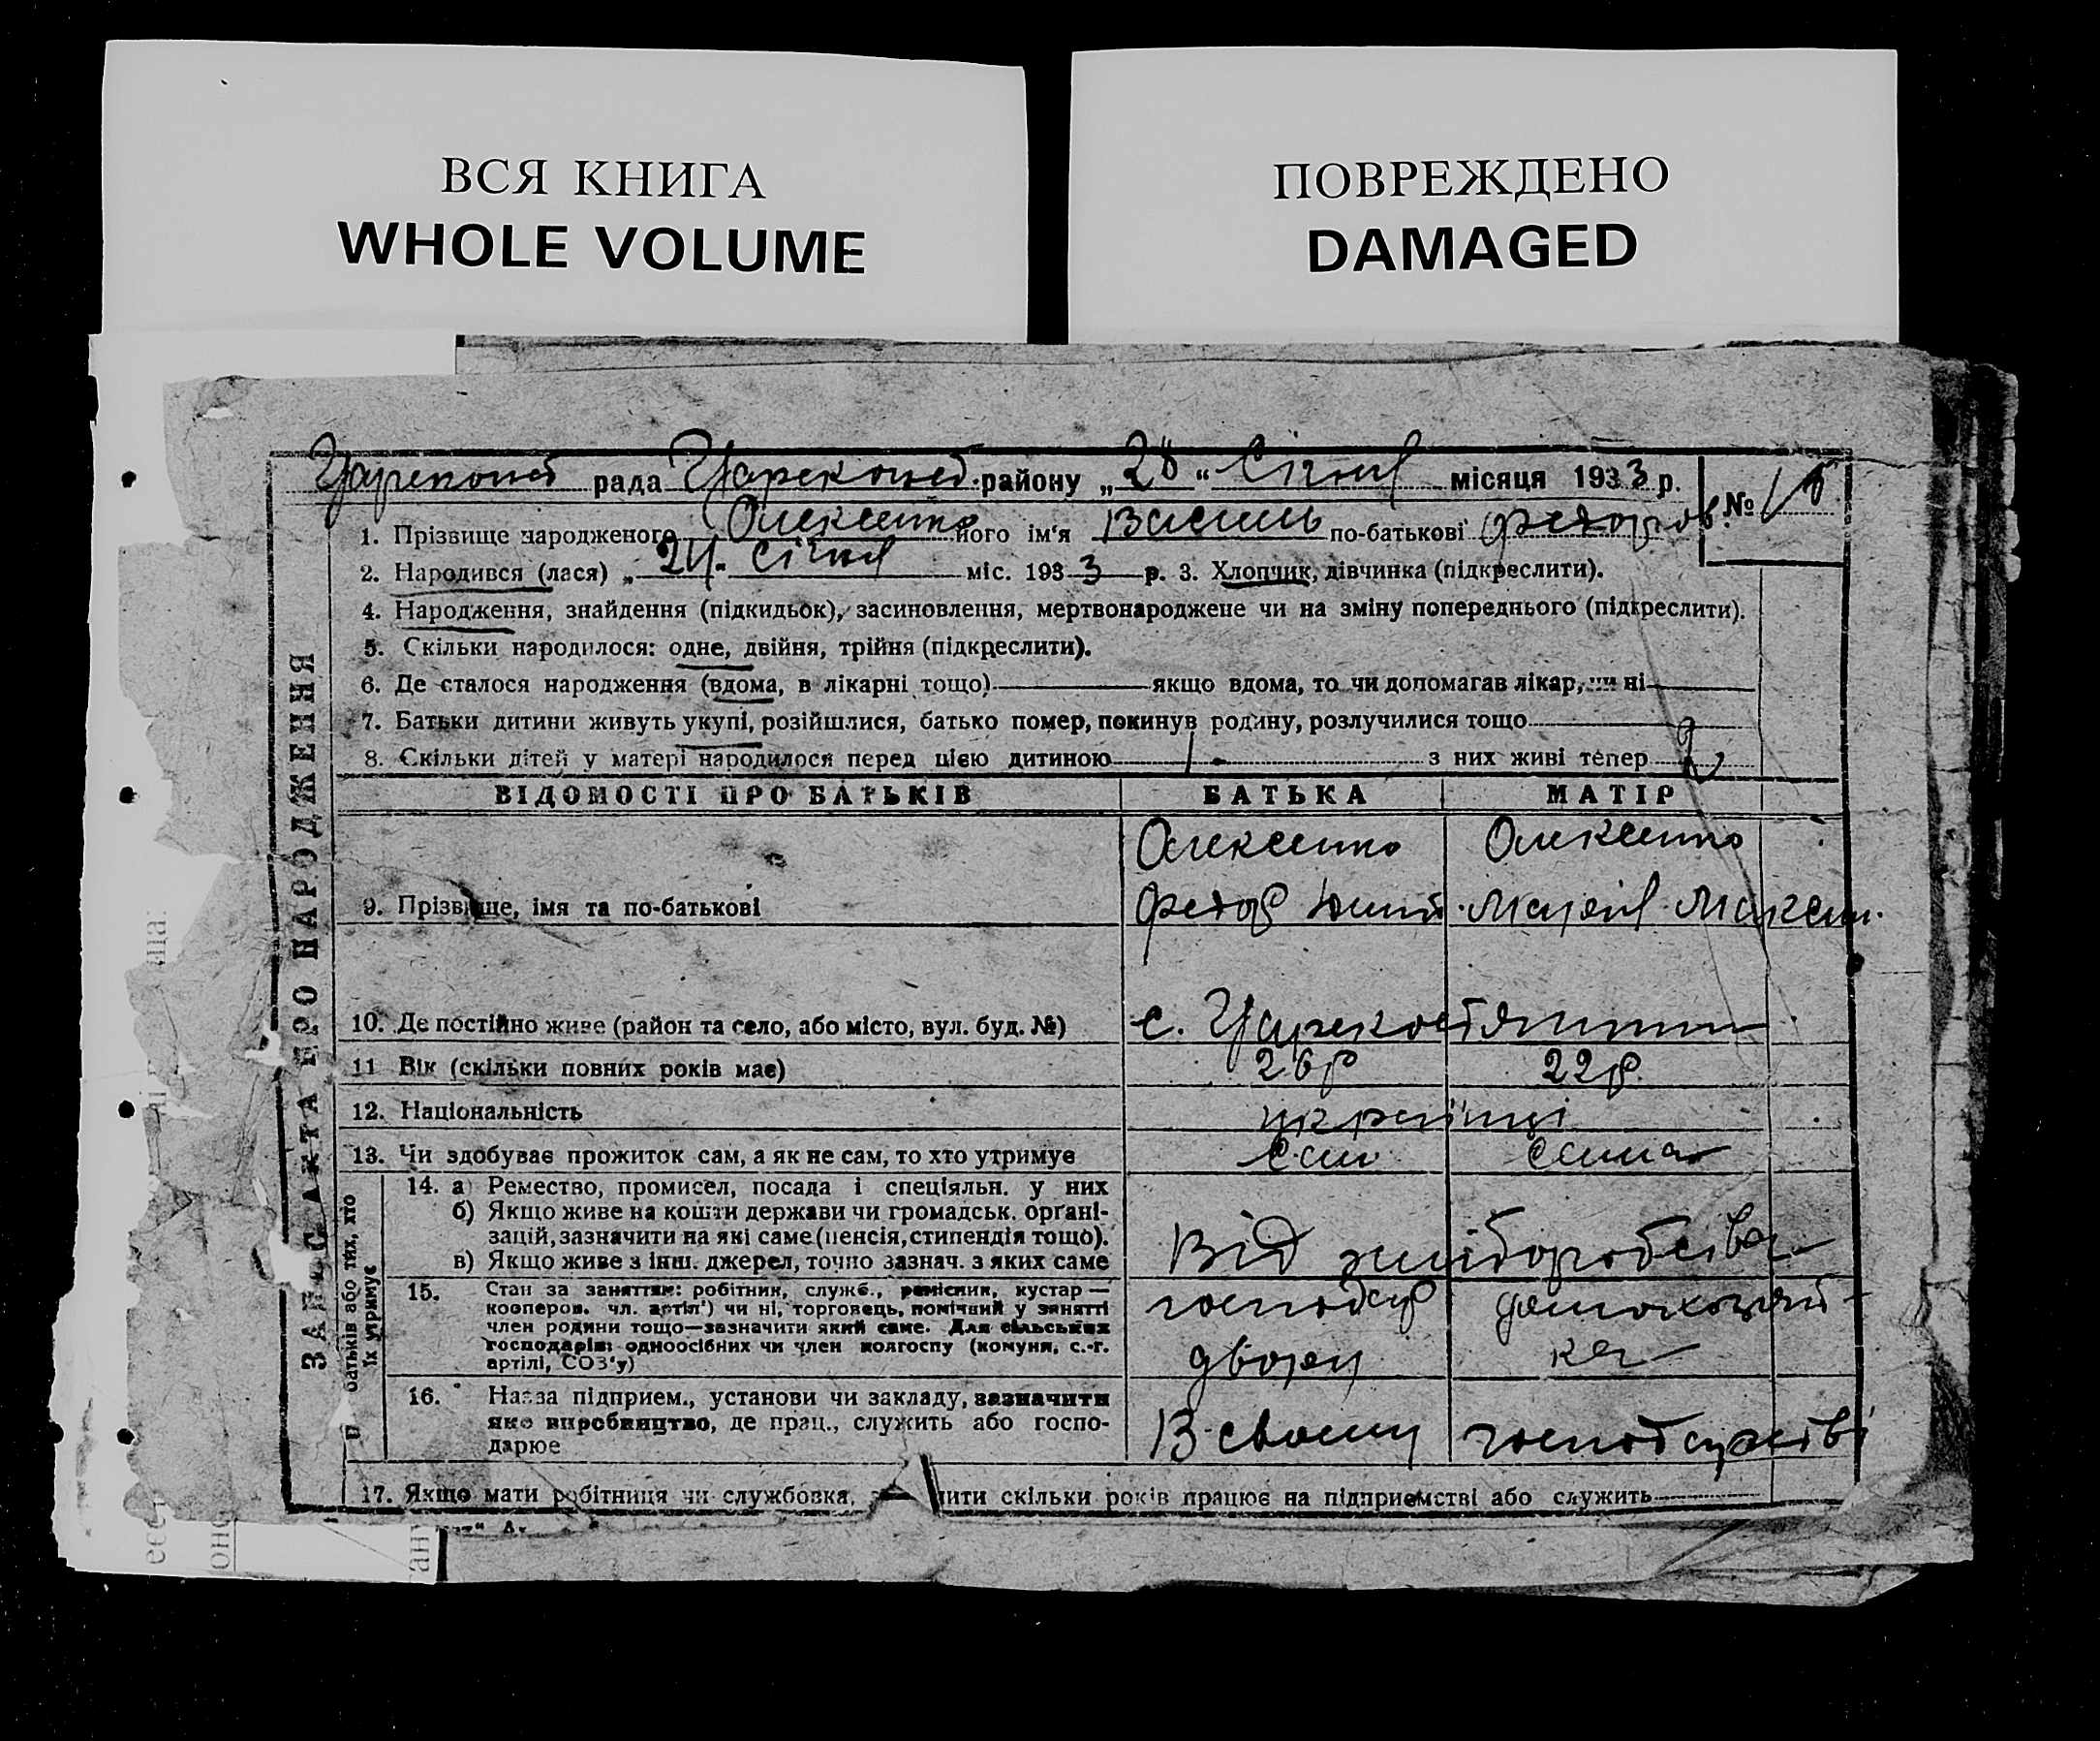 ВСЯ КНИГА
WHOLE VOLUME
ПОВРЕЖДЕНО
DAMAGED
рада района „28“ Січня місяця 1933 р.
№
1. Прізвище народженого Олексенко його ім‘я Василь по-батькові Федоров.
2. Народився (лася) „24. Січня міс. 1933 р. 3. Хлопчик, дівчинка (підкреслити).
4. Народження, знайдення (підкидьок), засиновлення, мертвонароджене чи на зміну попереднього (підкреслити).
5. Скільки народилося: одне, двійня, трійня (підкреслити).
6. Де сталося народження (вдома, в лікарні тощо) якщо вдома, то чи допомагав лікар, чи ні
7. Батьки дитини живуть укупі, розійшлися, батько помер, покинув родину, розлучилися тощо
8. Скільки дітей у матері народилося перед цією дитиною 1 з них живі тепер
ВІДОМОСТІ ПРО БАТЬКІВ БАТЬКА МАТІР
Олексенко Олексенко
9. Прізвище, імя та по-батькові Федор Марія Максим.
10. Де постійно живе (район та село, або місто, вул. буд. №) с.
11 Вік (скільки повних років має) 26р 22р.
12. Національність українці
13. Чи здобуває прожиток сам, а як не сам, то хто утримує сам сама
14. а) Ремество, промисел, посада і спеціяльн. у них
б) Якщо живе на кошти держави чи громадськ. органі-
зацій, зазначити на які саме (пенсія, стипендія тощо).
в) Якщо живе з інш. джерел, точно зазнач. з яких саме
Від хліборобства
15. Стан за заняттям: робітник, служб., ремісник, кустар —
кооперов. чл. артіл‘) чи ні, торговець, помічний у занятті
член родини тощо—зазначити який саме. Для сільських
господарів: одноосібних чи член колгоспу (комуни, с.-г.
артілі, СОЗ‘у)
господар домохозяй-
двору ка
16. Назва підприєм., установи чи закладу, зазначити
яке виробництво, де прац., служить або госпо-
дарює
В своєму господарстві
17. Якщо мати робітниця чи службовка, чити скільки років працює на підприємстві або служить
ЗАПИС АКТА ПРО НАРОДЖЕННЯ
батьків або тих, хто
їх утримує